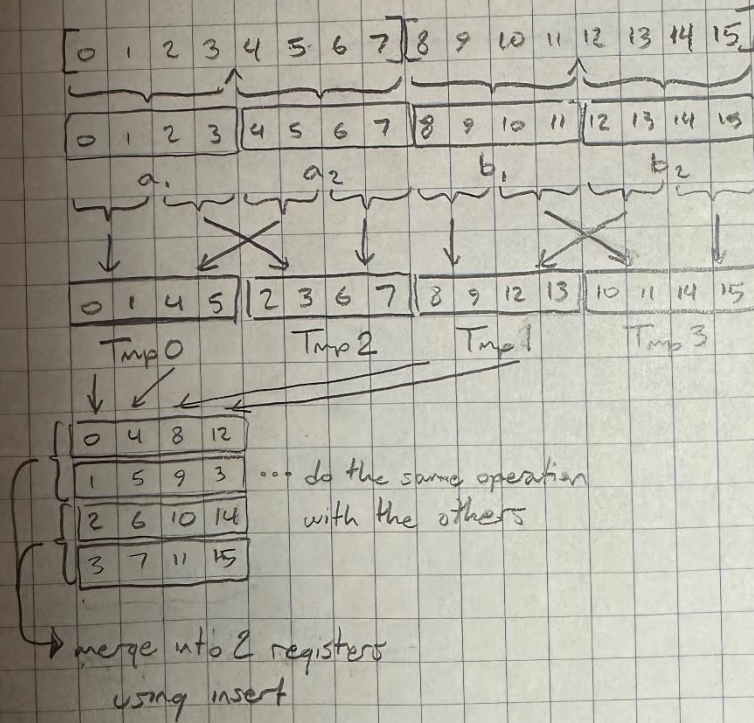 [0 1 2 3 4 5 6 7][8 9 10 11 12 13 14 15]
0 1 2 3 4 5 6 7 8 9 10 11 12 13 14 15
a1 a2 b1 b2
0 1 4 5 2 3 6 7 8 9 12 13 10 11 14 15
Tmp0 Tmp2 Tmp1 Tmp3
0 4 8 12
1 5 9 3 ... do the same operation
2 6 10 14 with the others
3 7 11 15
merge into 2 registers
using insert